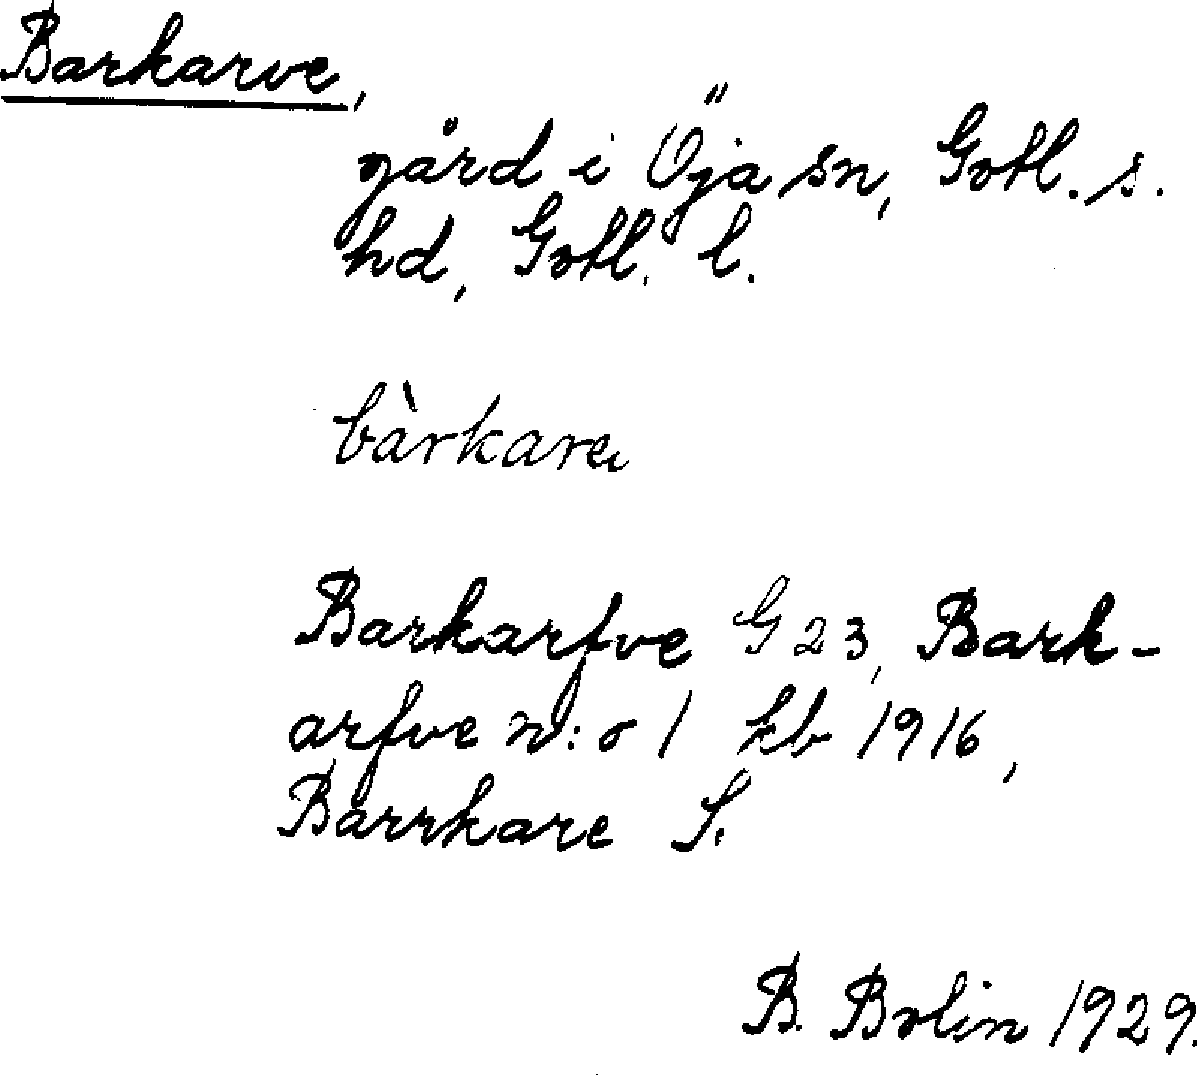 Barkarve,
gård i Öja sn, Gotl. s.
hd, Gotl. l.
bàrkare
Barkarfve G 23, Bark-
arfve n:o 1 kb 1916,
Barrkare S.
B. Bolin 1929.